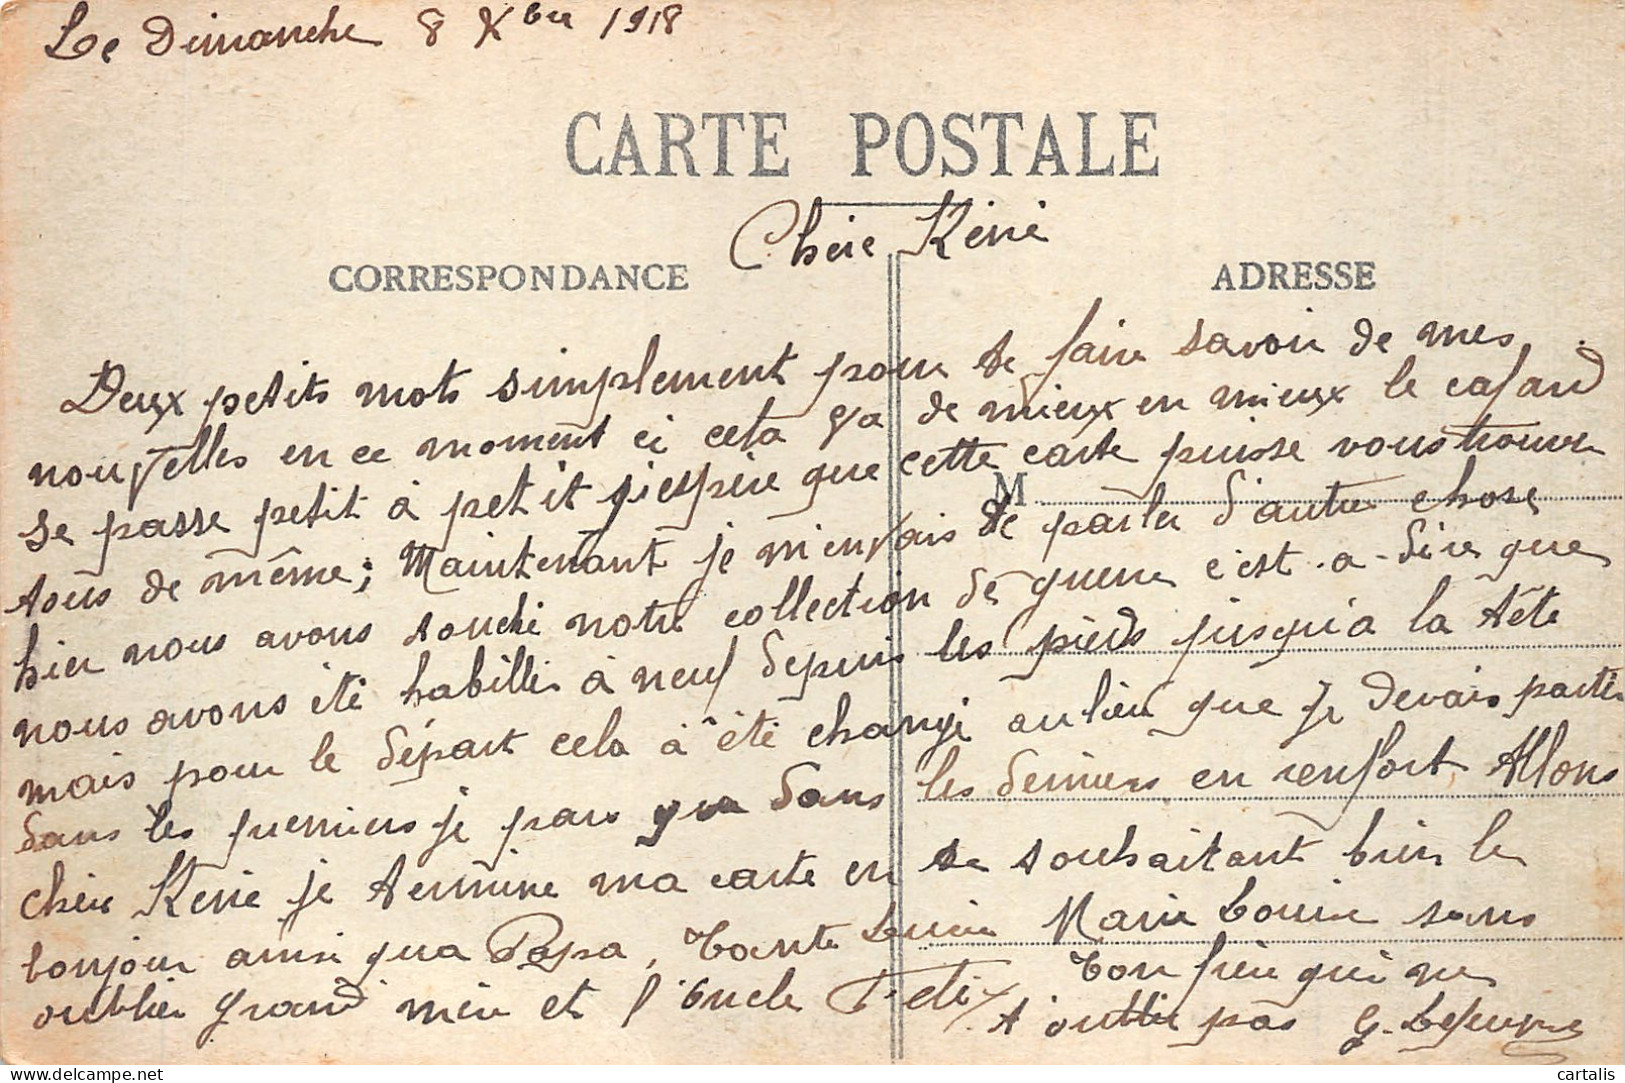 Le Dimanche 8 Xbre 1918
CARTE POSTALE
Chère René
CORRESPONDANCE
ADRESSE
Deux petits mots simplement pour te faire savoir de mes
nouvelles en ce moment ci cela va de mieux en mieux le cafard
se passe petit à petit j'iespère que cette carte puisse vous trouver
M
tous de même; Maintenant je m'en vais te parler d'autre chose
hier nous avons touché notre collection de guerre c'est-a-dire que
nous avons été habillés à neuf depuis les pieds jusqu'a la tête
mais pour le départ cela à été changé au lieu que je devais partir
dans les premiers je pars dans les derniers en renfort. Allons
chère René je termine ma carte en te souhaitant bien le
bonjour ainsi qu'a Papa, Tante Lucie Marie Louise sans
oublier Grand mère et l'Oncle Félix Ton frère qui ne
t'oublie pas G. Lefeuvre
cartalis